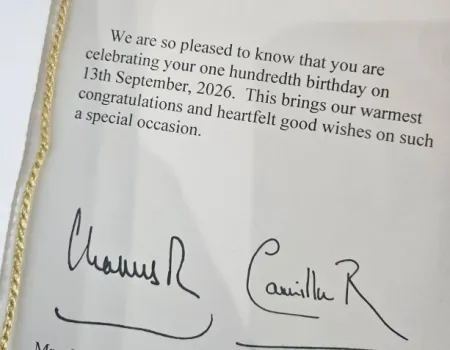 We are so pleased to know that you are
celebrating your one hundredth birthday on
13th September, 2026. This brings our warmest
congratulations and heartfelt good wishes on such
a special occasion.
Charles R
Camilla R